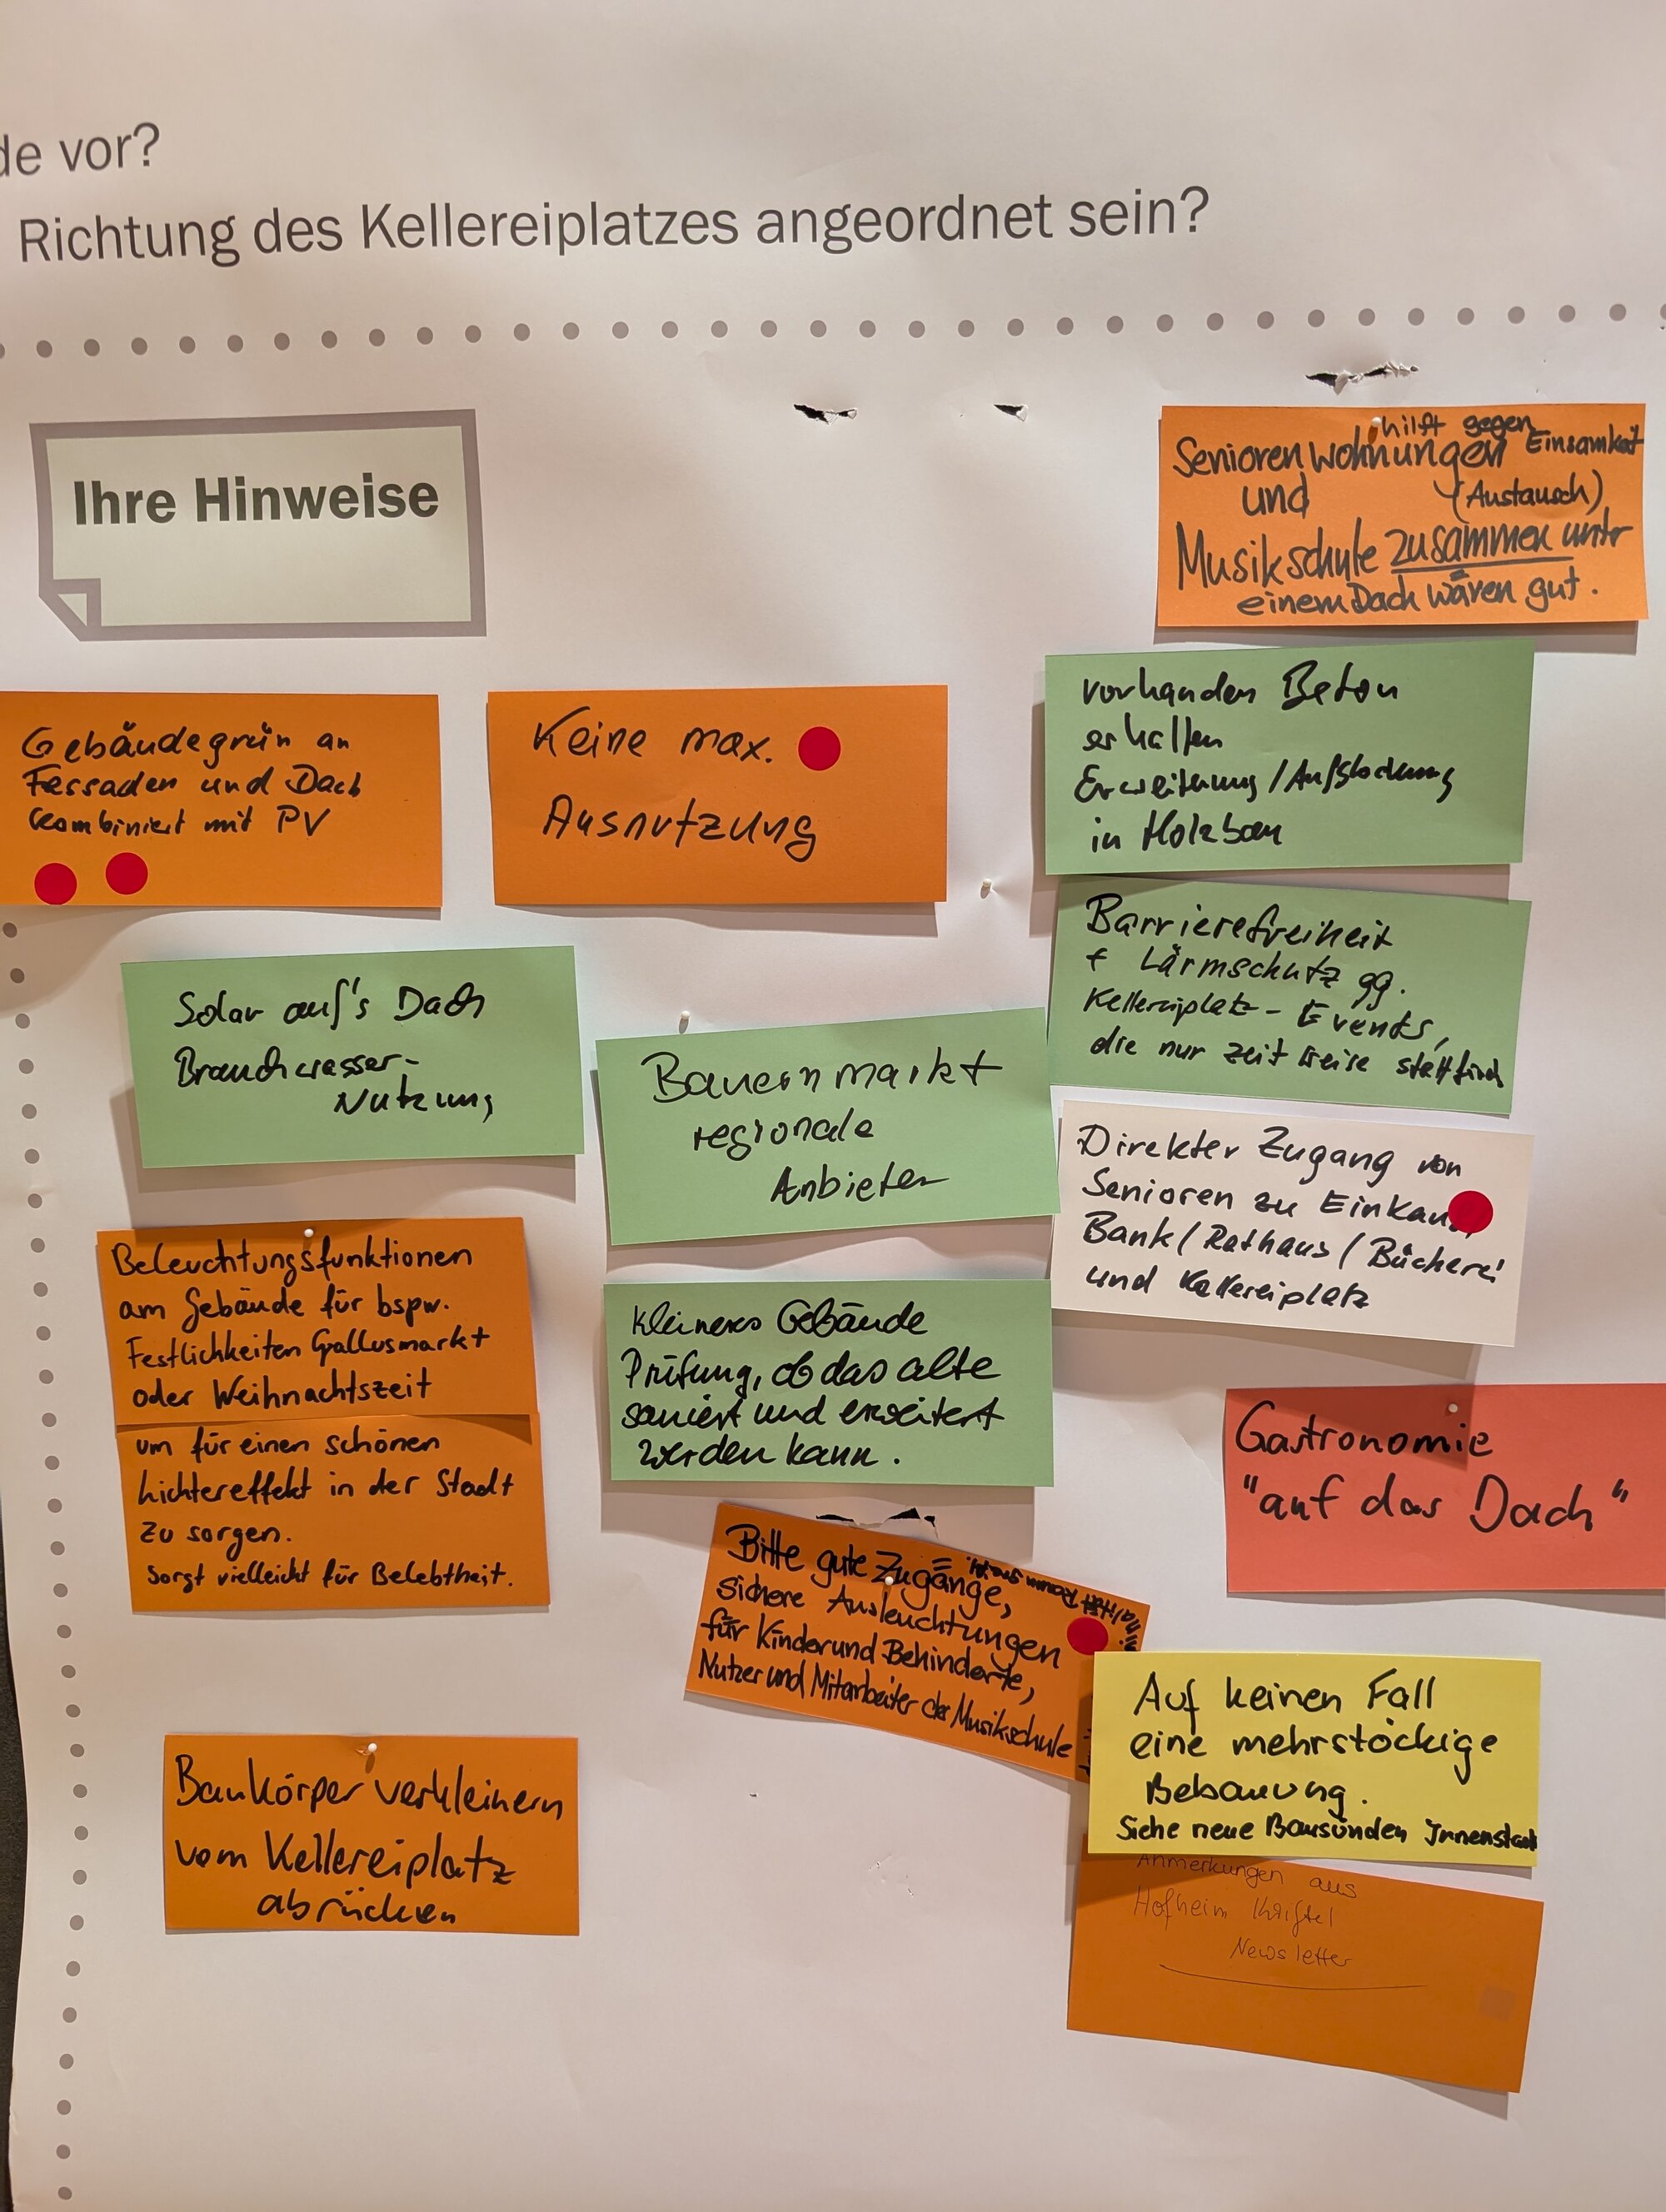 de vor?
Richtung des Kellereiplatzes angeordnet sein?
Ihre Hinweise
hilft gegen
Seniorenwohnungen Einsamkeit
und (Austausch)
Musikschule zusammen unter
einem Dach wären gut.
Gebäudegrün an
Fassaden und Dach
kombiniert mit PV
Keine max.
Ausnutzung
vorhanden Beton
erhalten
Erweiterung/Aufstockung
in Holzbau
Barrierefreiheit
+ Lärmschutz gg.
Kellereiplatz-Events,
die nur zeitweise stattfind
Solar auf's Dach
Brauchwasser-
Nutzung
Bauernmarkt
regionale
Anbieter
Direkter Zugang von
Senioren zu
Bank/Rathaus/Bücherei
und Kellereiplatz
Beleuchtungsfunktionen
am Gebäude für bspw.
Festlichkeiten Gallusmarkt
oder Weihnachtszeit
um für einen schönen
Lichtereffekt in der Stadt
zu sorgen.
Sorgt vielleicht für Belebtheit.
kleineres Gebäude
Prüfung, ob das alte
saniert und erweitert
werden kann.
Gastronomie
"auf das Dach"
Bitte gute Zugänge,
sichere Ausleuchtungen
für Kinder und Behinderte,
Nutzer und Mitarbeiter der Musikschule
Auf keinen Fall
eine mehrstöckige
Bebauung.
Siehe neue Bausünden Innenstadt
Baukörper verkleinern
vom Kellereiplatz
abrücken
Anmerkungen aus
Hofheim Kriftel
Newsletter